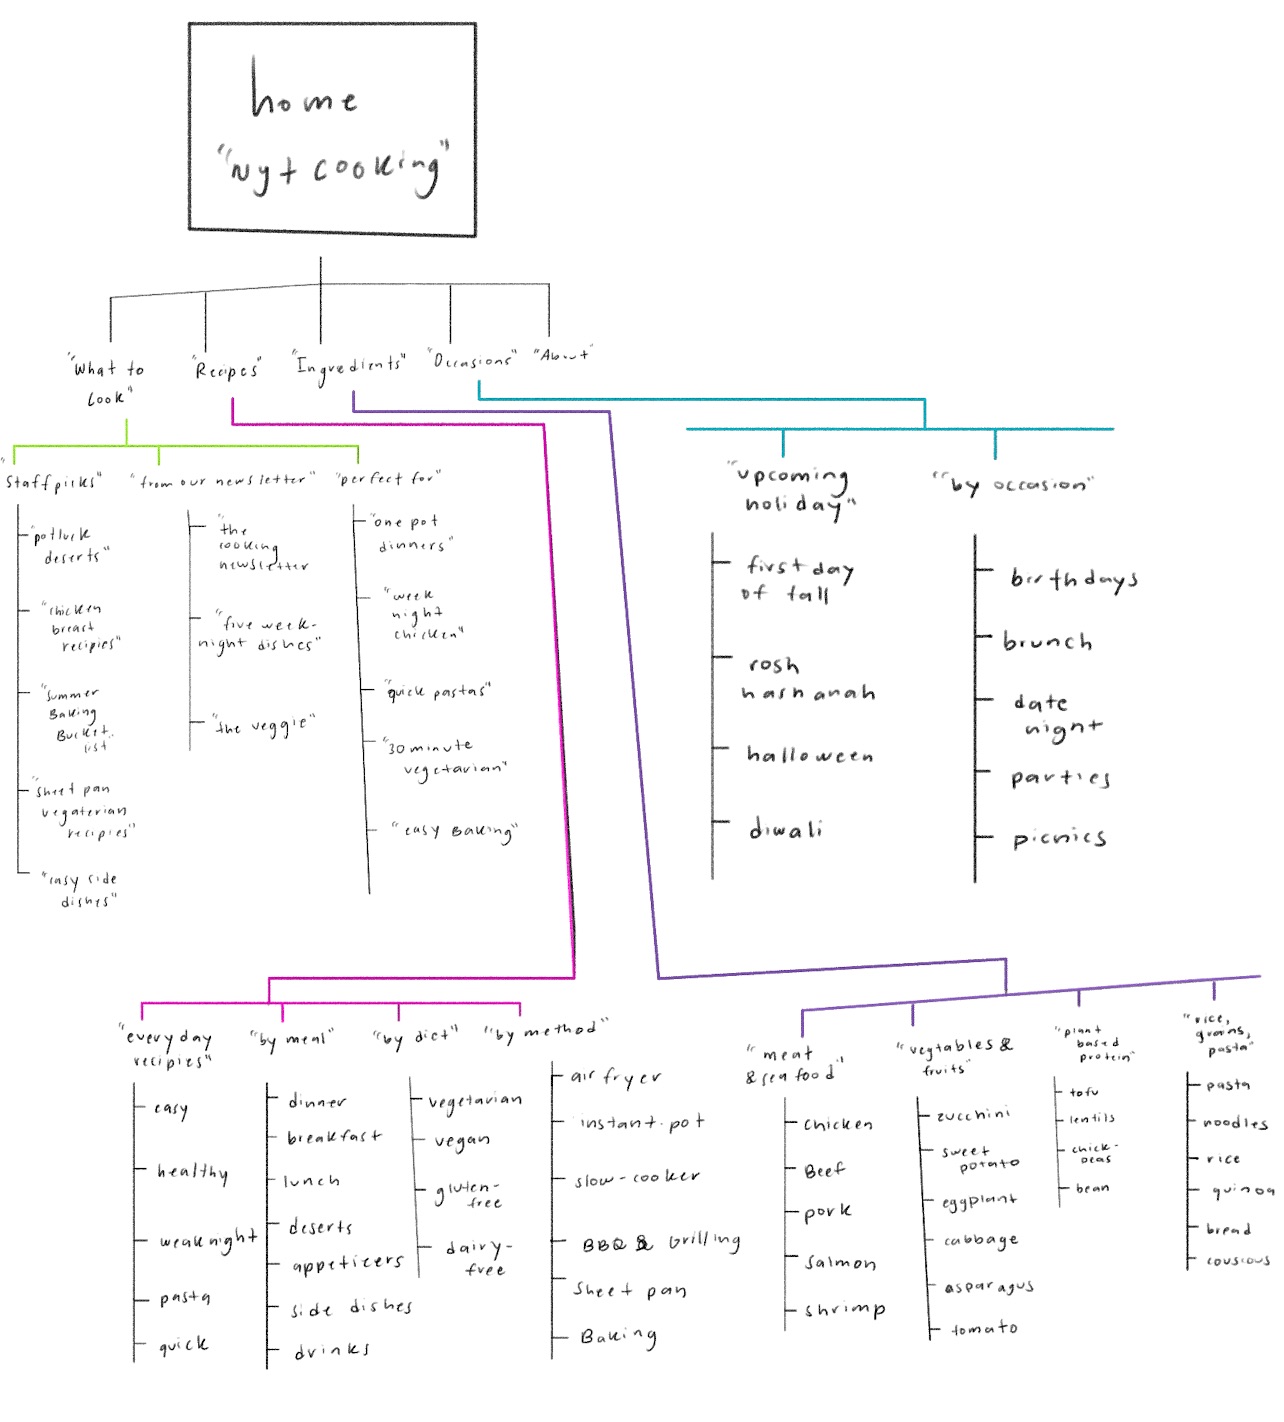 home
"nyt cooking"
"What to
Cook"
"Recipes"
"Ingredients"
"Occasions"
"About"
"Staff picks"
"potluck
deserts"
"chicken
breast
recipies"
"Summer
Baking
Bucket
list
"sheet pan
vegaterian
recipies"
"easy side
dishes"
"from our newsletter"
"the
cooking
newsletter
"five week-
night dishes"
"the veggie"
"perfect for"
"one pot
dinners"
"week
night
chicken"
"quick pastas"
"30 minute
vegetarian"
"easy Baking"
"upcoming
holiday"
first day
of fall
rosh
hashanah
halloween
diwali
"by occasion"
birthdays
brunch
date
night
parties
picnics
"everyday
recipies"
easy
healthy
weaknight
pasta
quick
"by meal"
dinner
breakfast
lunch
deserts
appetizers
side dishes
drinks
"by diet"
vegetarian
vegan
gluten-
free
dairy-
free
"by method"
air fryer
instant.pot
slow-cooker
BBQ & Grilling
Sheet pan
Baking
"meat
& sea food"
chicken
Beef
pork
salmon
shrimp
"vegtables &
fruits"
zucchini
sweet
potato
eggplant
cabbage
asparagus
tomato
"plant
based
protein"
tofu
lentils
chick-
peas
bean
"rice,
grains,
pasta"
pasta
noodles
rice
quinoa
bread
cousious